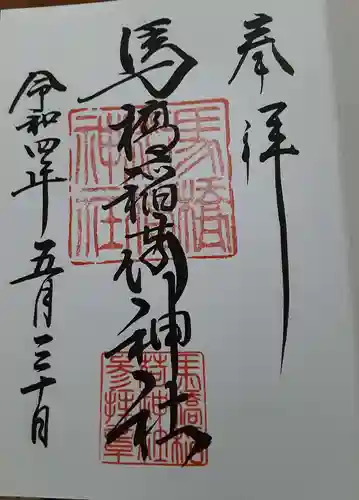 奉拝
馬橋稲荷神社
令和四年五月三十日
馬橋
稲荷
神社
馬橋稲
荷神社
参拝章